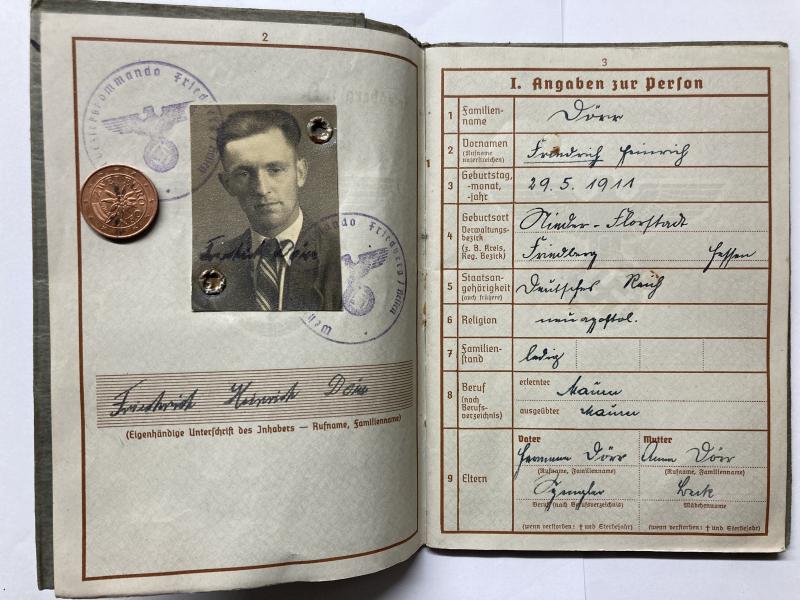 2
Wehrbezirkskommando Friedberg
Wehrbezirkskommando Friedberg / Hessen
Friedrich Dörr
Friedrich Heinrich Dörr
(Eigenhändige Unterschrift des Inhabers — Rufname, Familienname)
3
I. Angaben zur Person
1 Familien-
name
Dörr
2 Vornamen
(Rufname
unterstreichen)
Friedrich Heinrich
3 Geburtstag,
-monat,
-jahr
29. 5. 1911
4 Geburtsort
Verwaltungs-
bezirk
(z. B. Kreis,
Reg. Bezirk)
Nieder-Florstadt
Friedberg Hessen
5 Staatsan-
gehörigkeit
(auch frühere)
Deutsches Reich
6 Religion
neuapostol.
7 Familien-
stand
ledig
8 Beruf
(nach
Berufs-
verzeichnis)
erlernter
ausgeübter
9 Eltern
Vater
Mutter
Hermann Dörr
Anna Dörr
(Rufname, Familienname)
(Rufname, Familienname)
Spengler
Beck
Beruf (nach Berufsverzeichnis)
Mädchenname
(wenn verstorben: † und Sterbejahr)
(wenn verstorben: † und Sterbejahr)